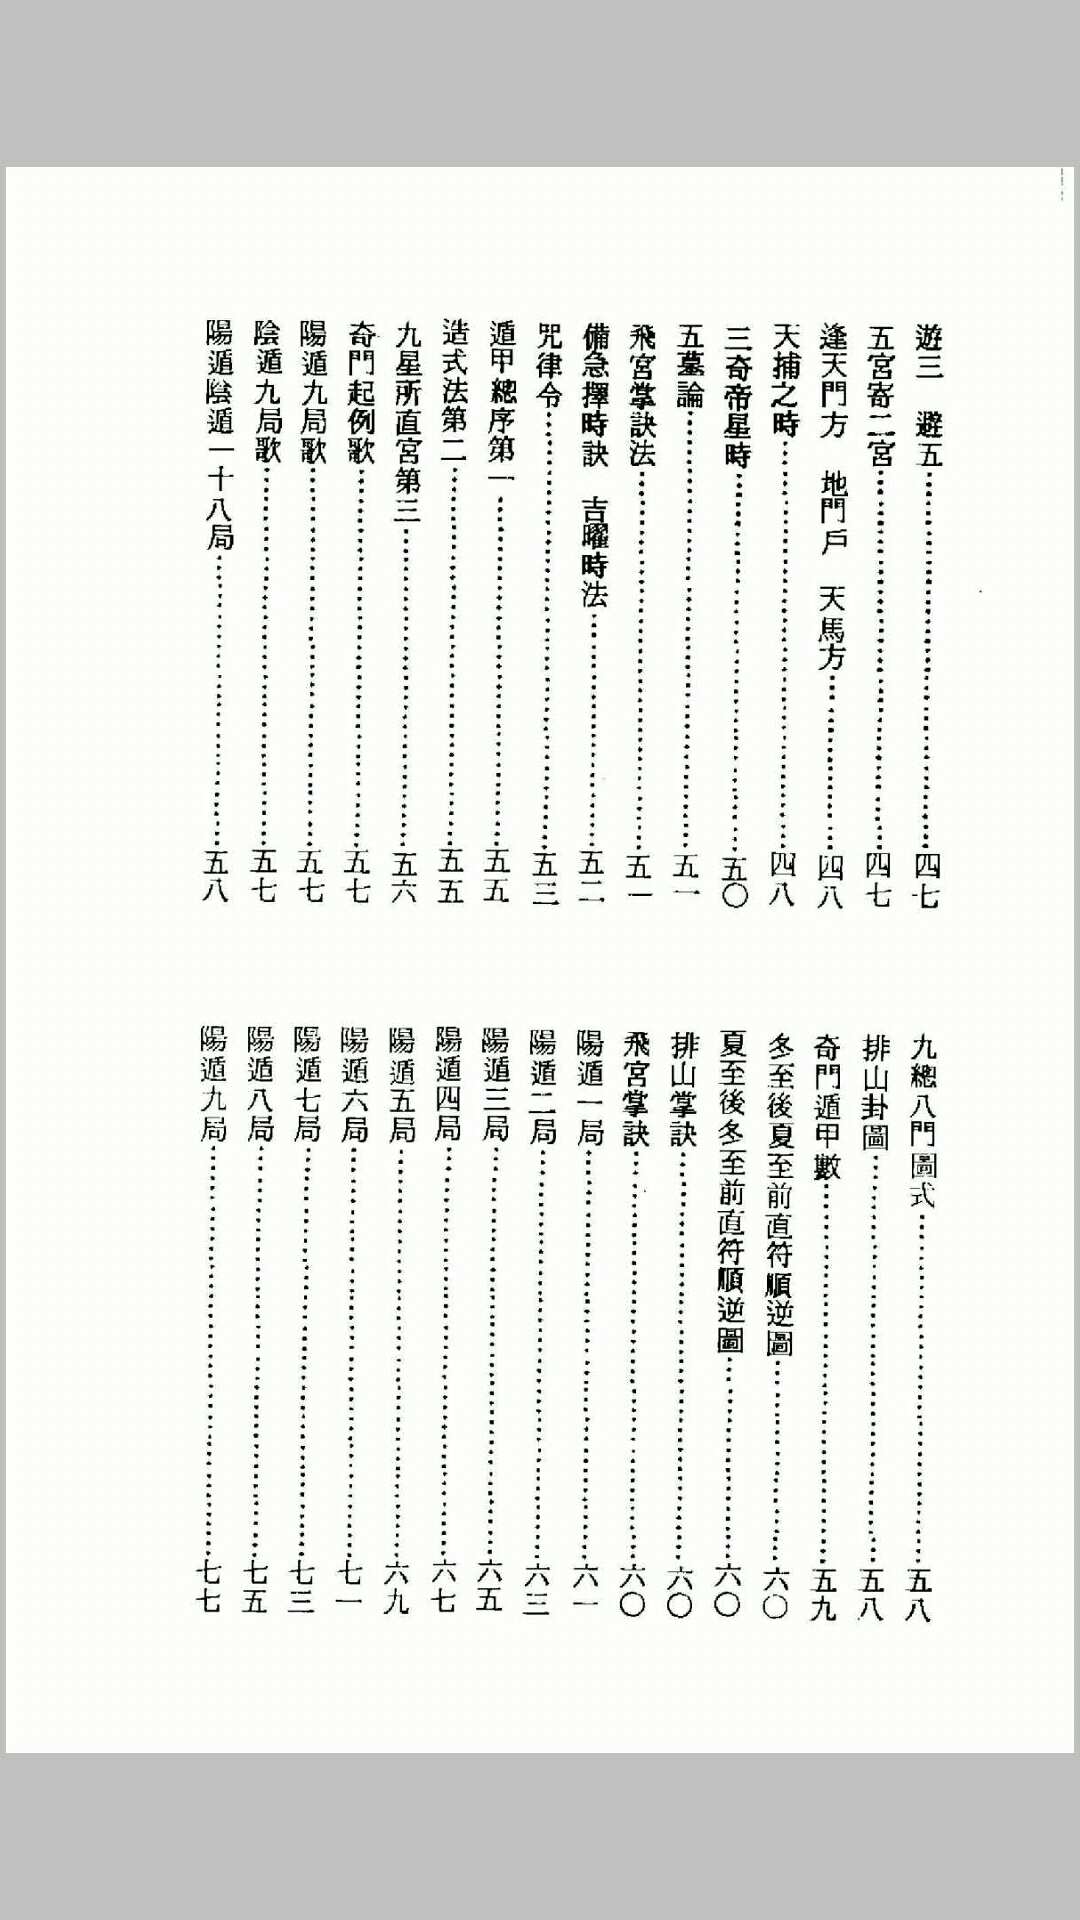 遊三　避五……四七
五宮寄二宮……四七
逢天門方　地門戶　天馬方……四八
天捕之時……四八
三奇帝星時……五〇
五墓論……五一
飛宮掌訣法……五一
備急擇時訣　吉曜時法……五二
咒律令……五三
遁甲總序第一……五五
造式法第二……五五
九星所直宮第三……五六
奇門起例歌……五七
陽遁九局歌……五七
陰遁九局歌……五七
陽遁陰遁一十八局……五八
九總八門圖式……五八
排山卦圖……五八
奇門遁甲數……五九
冬至後夏至前直符順逆圖……六〇
夏至後冬至前直符順逆圖……六〇
排山掌訣……六〇
飛宮掌訣……六〇
陽遁一局……六一
陽遁二局……六三
陽遁三局……六五
陽遁四局……六七
陽遁五局……六九
陽遁六局……七一
陽遁七局……七三
陽遁八局……七五
陽遁九局……七七